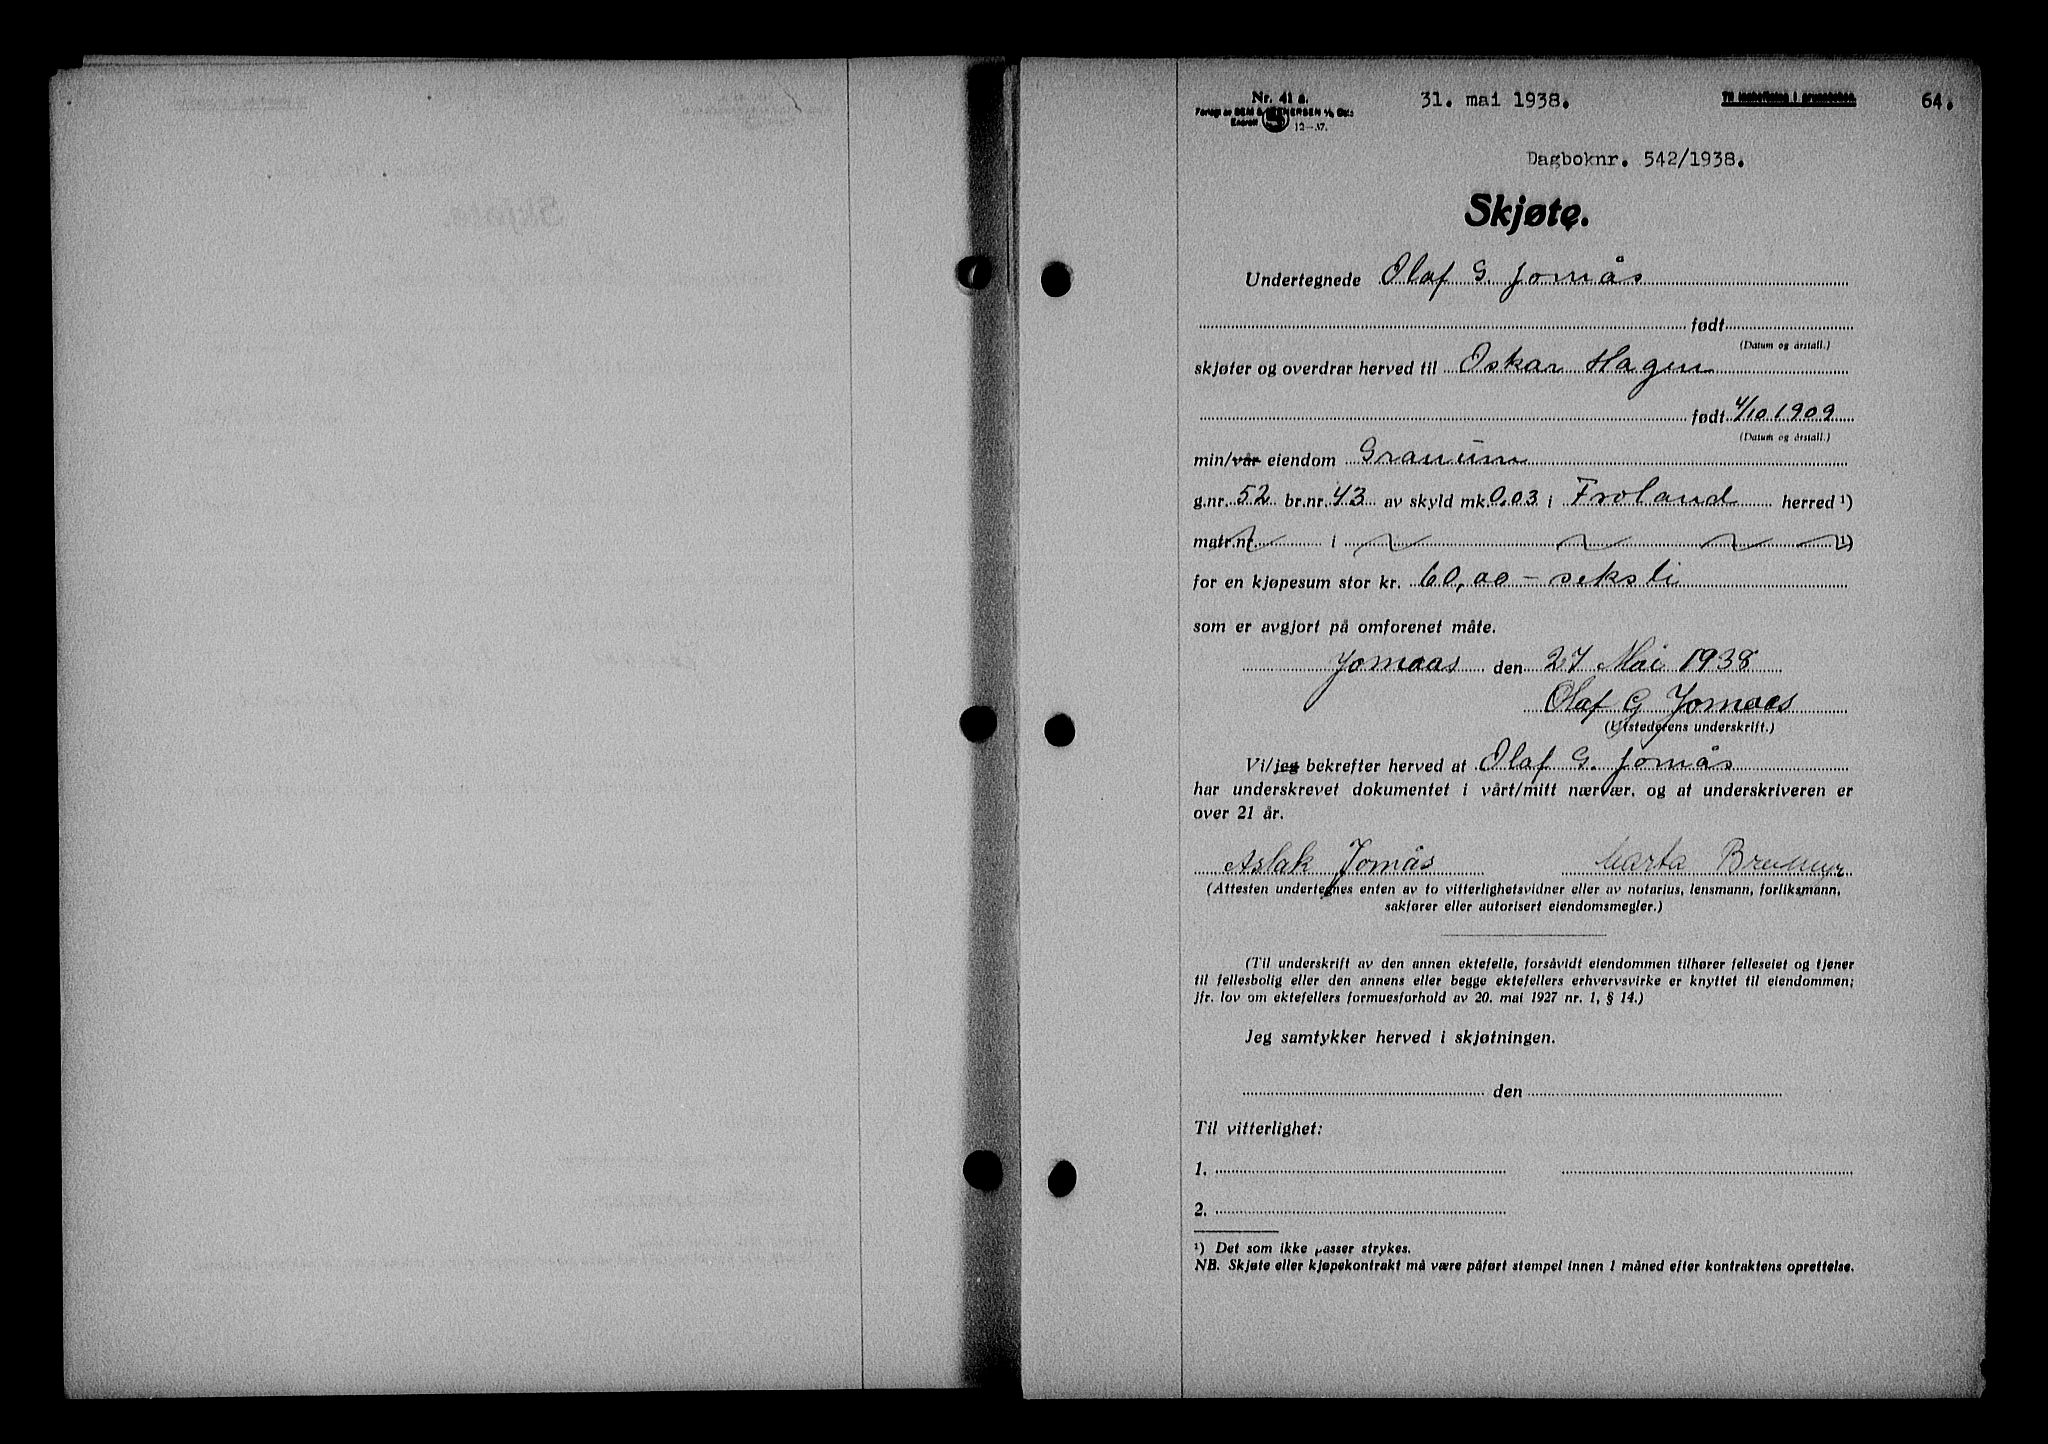 Nr. 41 a.
31. mai 1938.
64.
12-37.
Dagboknr. 542/1938.
Skjøte.
Undertegnede Olaf G. Jomås
født
(Datum og årstall.)
skjøter og overdrar herved til Oskar Hagen
født 4/10 1909
(Datum og årstall.)
min/vår eiendom Granum
g.nr. 52 br.nr. 43 av skyld mk. 0,03 i Froland herred ¹)
matr.nr. i ¹)
for en kjøpesum stor kr. 60,00 - seksti
som er avgjort på omforenet måte.
Jomaas den 27 Mai 1938
Olaf G Jomaas
(Utstederens underskrift.)
Vi/jeg bekrefter herved at Olaf G. Jomås
har underskrevet dokumentet i vårt/mitt nærvær, og at underskriveren er
over 21 år.
Aslak Jomås Marta
(Attesten undertegnes enten av to vitterlighetsvidner eller av notarius, lensmann, forliksmann,
sakfører eller autorisert eiendomsmegler.)
(Til underskrift av den annen ektefelle, forsåvidt eiendommen tilhører felleseiet og tjener
til fellesbolig eller den annens eller begge ektefellers erhvervsvirke er knyttet til eiendommen;
jfr. lov om ektefellers formuesforhold av 20. mai 1927 nr. 1, § 14.)
Jeg samtykker herved i skjøtningen.
den
Til vitterlighet:
1.
2.
¹) Det som ikke passer strykes.
NB. Skjøte eller kjøpekontrakt må være påført stempel innen 1 måned efter kontraktens oprettelse.